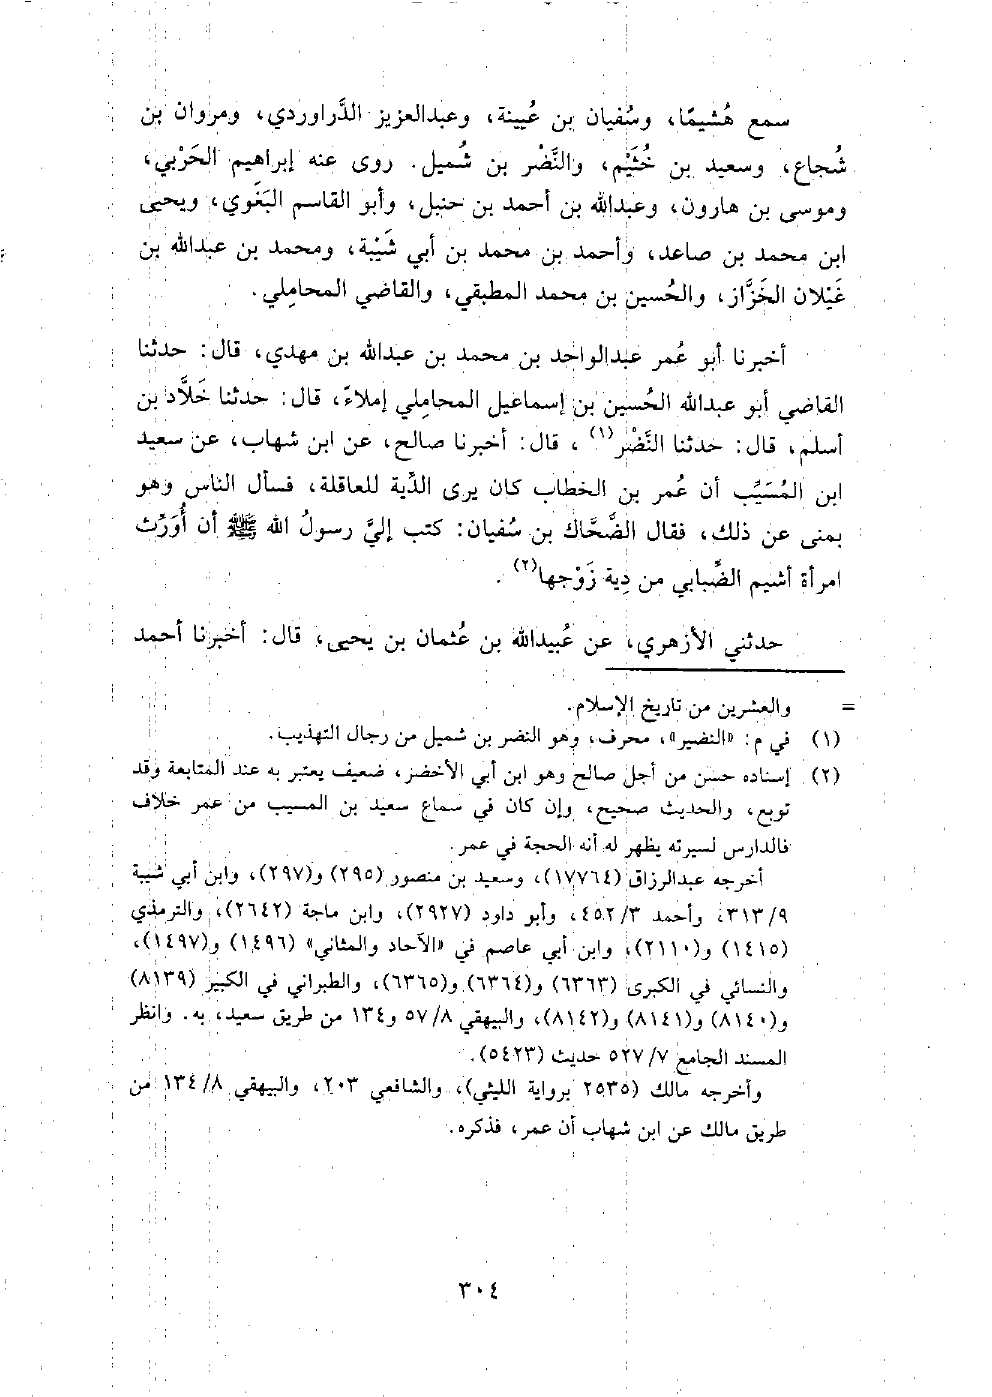 سمع هُشيمًا، وسُفيان بن عُيينة، وعبدالعزيز الدَّراوردي، ومروان بن
شُجاع، وسعيد بن خُثَيْم، والنَّضْر بن شُميل. روى عنه إبراهيم الحَرْبي،
وموسى بن هارون، وعبدالله بن أحمد بن حنبل، وأبو القاسم البَغَوي، ويحيى
ابن محمد بن صاعد، وأحمد بن محمد بن أبي شَيْبة، ومحمد بن عبدالله بن
غَيْلان الخَزَّاز، والحُسين بن محمد المطبقي، والقاضي المحامِلي.
أخبرنا أبو عُمر عبدالواحد بن محمد بن عبدالله بن مهدي، قال: حدثنا
القاضي أبو عبدالله الحُسين بن إسماعيل المحامِلي إملاءً، قال: حدثنا خَلَّاد بن
أسلم، قال: حدثنا النَّضْر(١)، قال: أخبرنا صالح، عن ابن شهاب، عن سعيد
ابن المُسَيِّب أن عُمر بن الخطاب كان يرى الدِّية للعاقلة، فسأل الناس وهو
بمنى عن ذلك، فقال الضَّحَّاك بن سُفيان: كتب إليَّ رسولُ الله ﷺ أن أُوَرِّث
امرأة أشيم الضِّبابي من دِية زَوْجها(٢).
حدثني الأزهري، عن عُبيدالله بن عُثمان بن يحيى، قال: أخبرنا أحمد
= والعشرين من تاريخ الإسلام.
(١) في م: «النضير»، محرف، وهو النضر بن شميل من رجال التهذيب.
(٢) إسناده حسن من أجل صالح وهو ابن أبي الأخضر، ضعيف يعتبر به عند المتابعة وقد
توبع، والحديث صحيح، وإن كان في سماع سعيد بن المسيب من عمر خلاف
فالدارس لسيرته يظهر له أنه الحجة في عمر.
أخرجه عبدالرزاق (١٧٧٦٤)، وسعيد بن منصور (٢٩٥) و(٢٩٧)، وابن أبي شيبة
٩/ ٣١٣، وأحمد ٣/ ٤٥٢، وأبو داود (٢٩٢٧)، وابن ماجة (٢٦٤٢)، والترمذي
(١٤١٥) و(٢١١٠)، وابن أبي عاصم في «الآحاد والمثاني» (١٤٩٦) و(١٤٩٧)،
والنسائي في الكبرى (٦٣٦٣) و(٦٣٦٤) و(٦٣٦٥)، والطبراني في الكبير (٨١٣٩)
و(٨١٤٠) و(٨١٤١) و(٨١٤٢)، والبيهقي ٨/ ٥٧ و١٣٤ من طريق سعيد، به. وانظر
المسند الجامع ٧/ ٥٢٧ حديث (٥٤٢٣).
وأخرجه مالك (٢٥٣٥ برواية الليثي)، والشافعي ٢٠٣، والبيهقي ٨/ ١٣٤ من
طريق مالك عن ابن شهاب أن عمر، فذكره.
٣٠٤